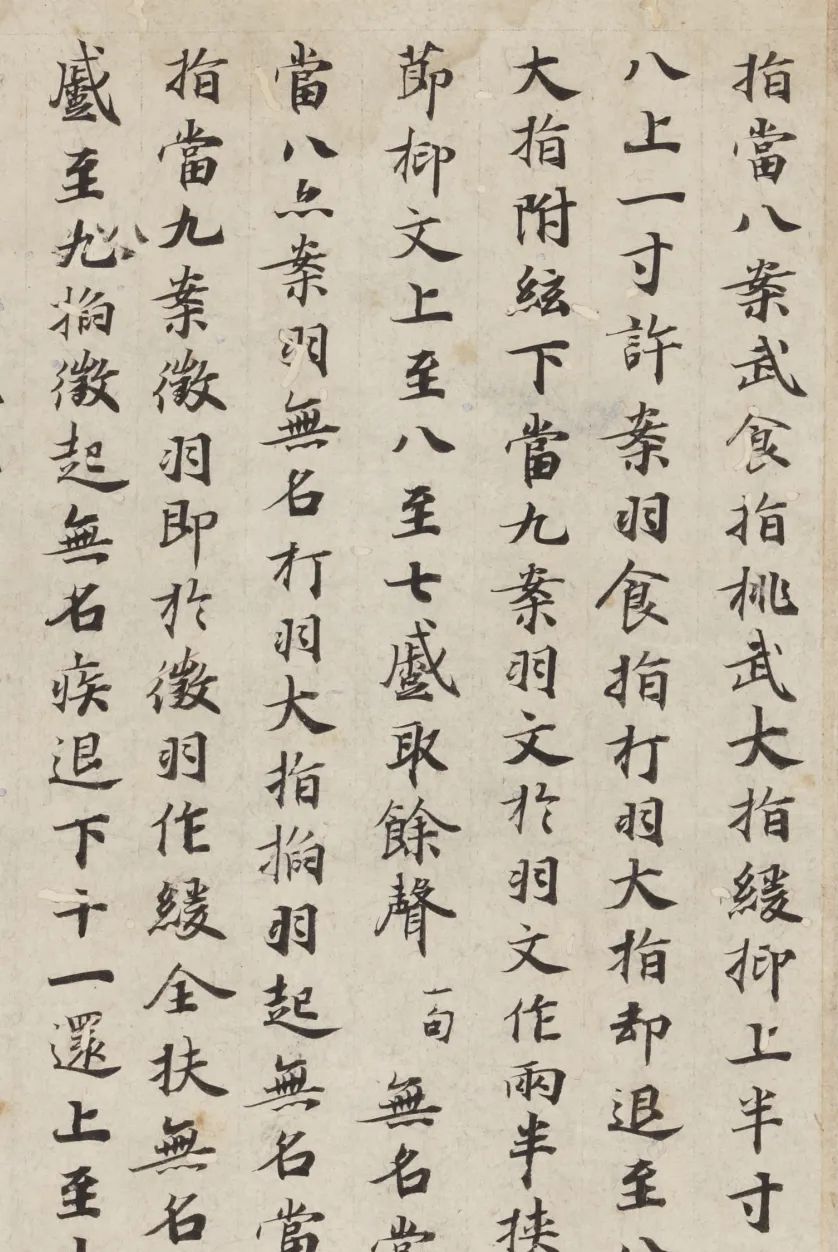 指當八案武食指桃武大指緩抑上半寸
八上一寸許案羽食指打羽大指却退至八
大指附絃下當九案羽文於羽文作兩半挟
節抑文上至八至七蹙取餘聲 一句 無名當
當八点案羽無名打羽大指搊羽起無名當
指當九案徵羽即於徵羽作緩全扶無名
蹙至九搊徵起無名疾退下十一還上至